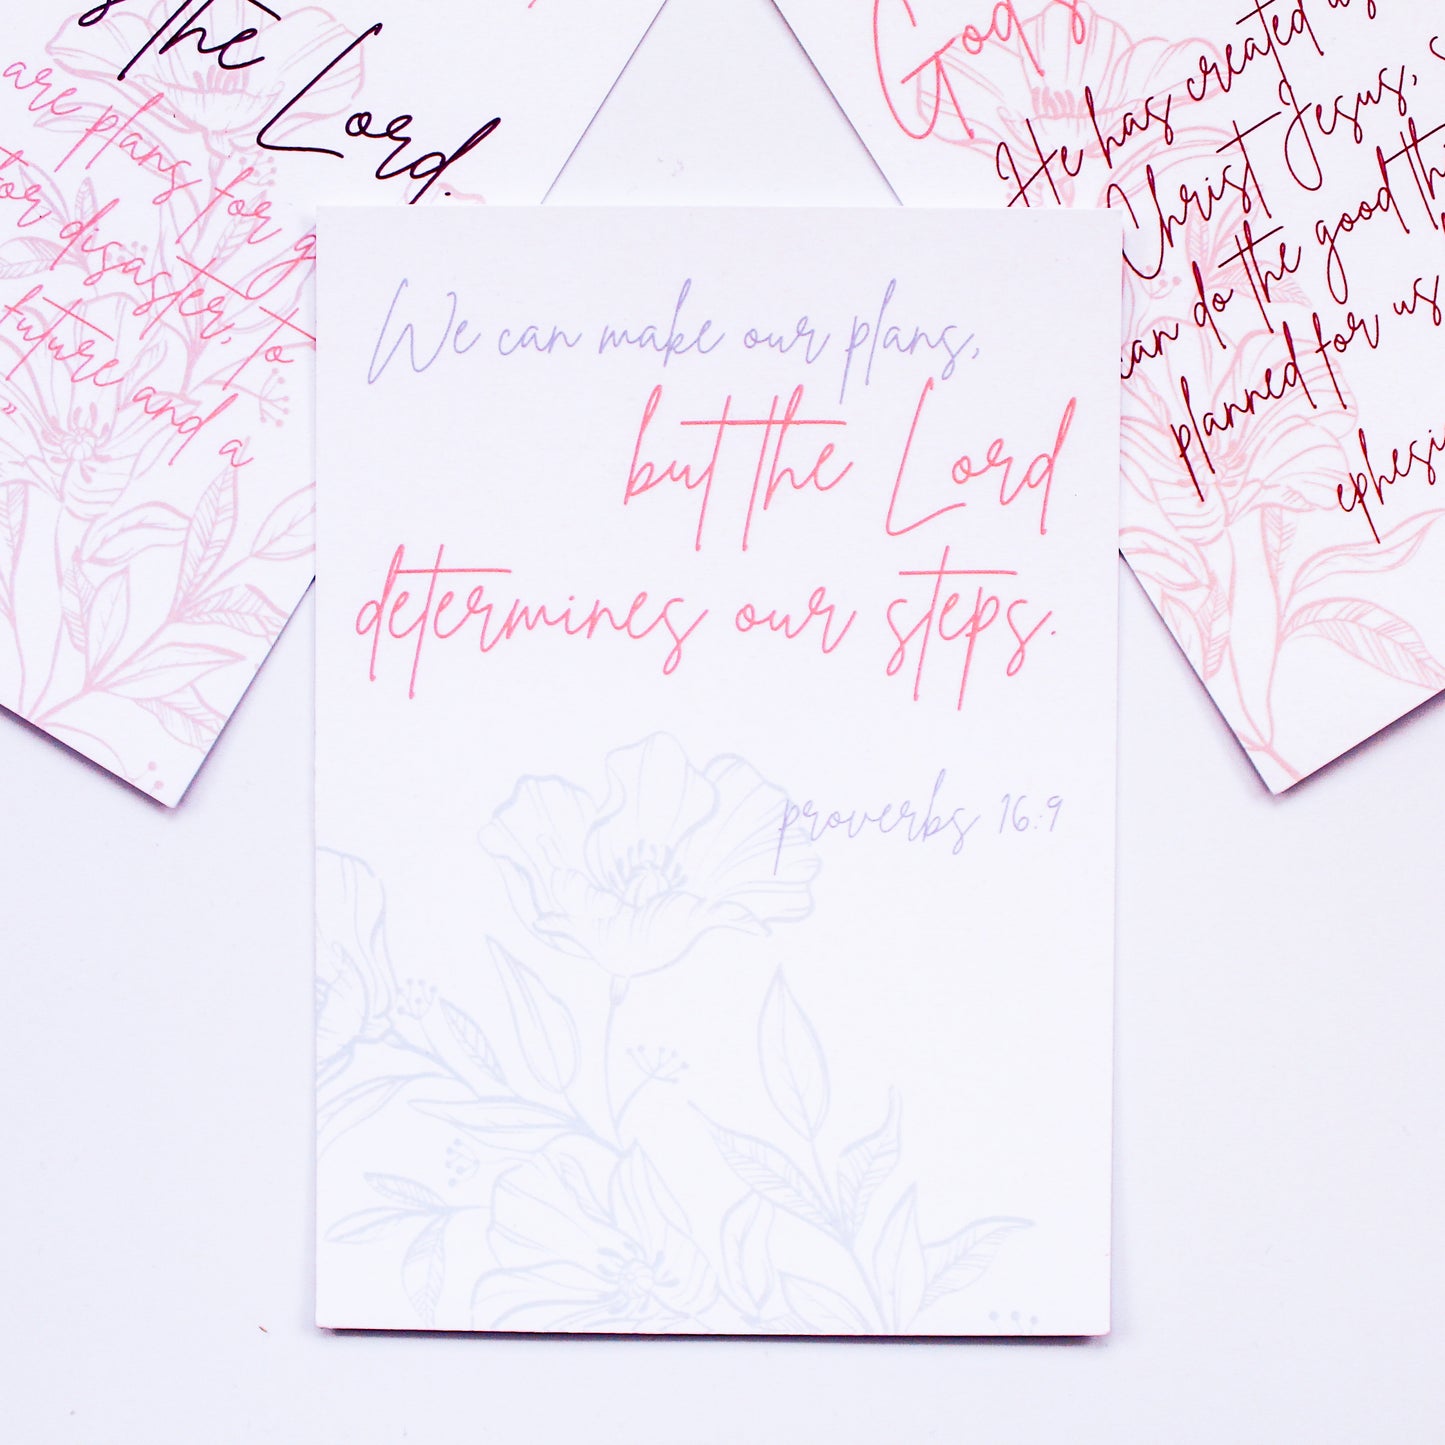 the Lord.
are plans for
for disaster, to
future and a
”
God's
He has created
Christ Jesus,
can do the good
planned for us
We can make our plans,
but the Lord
determines our steps.
proverbs 16:9